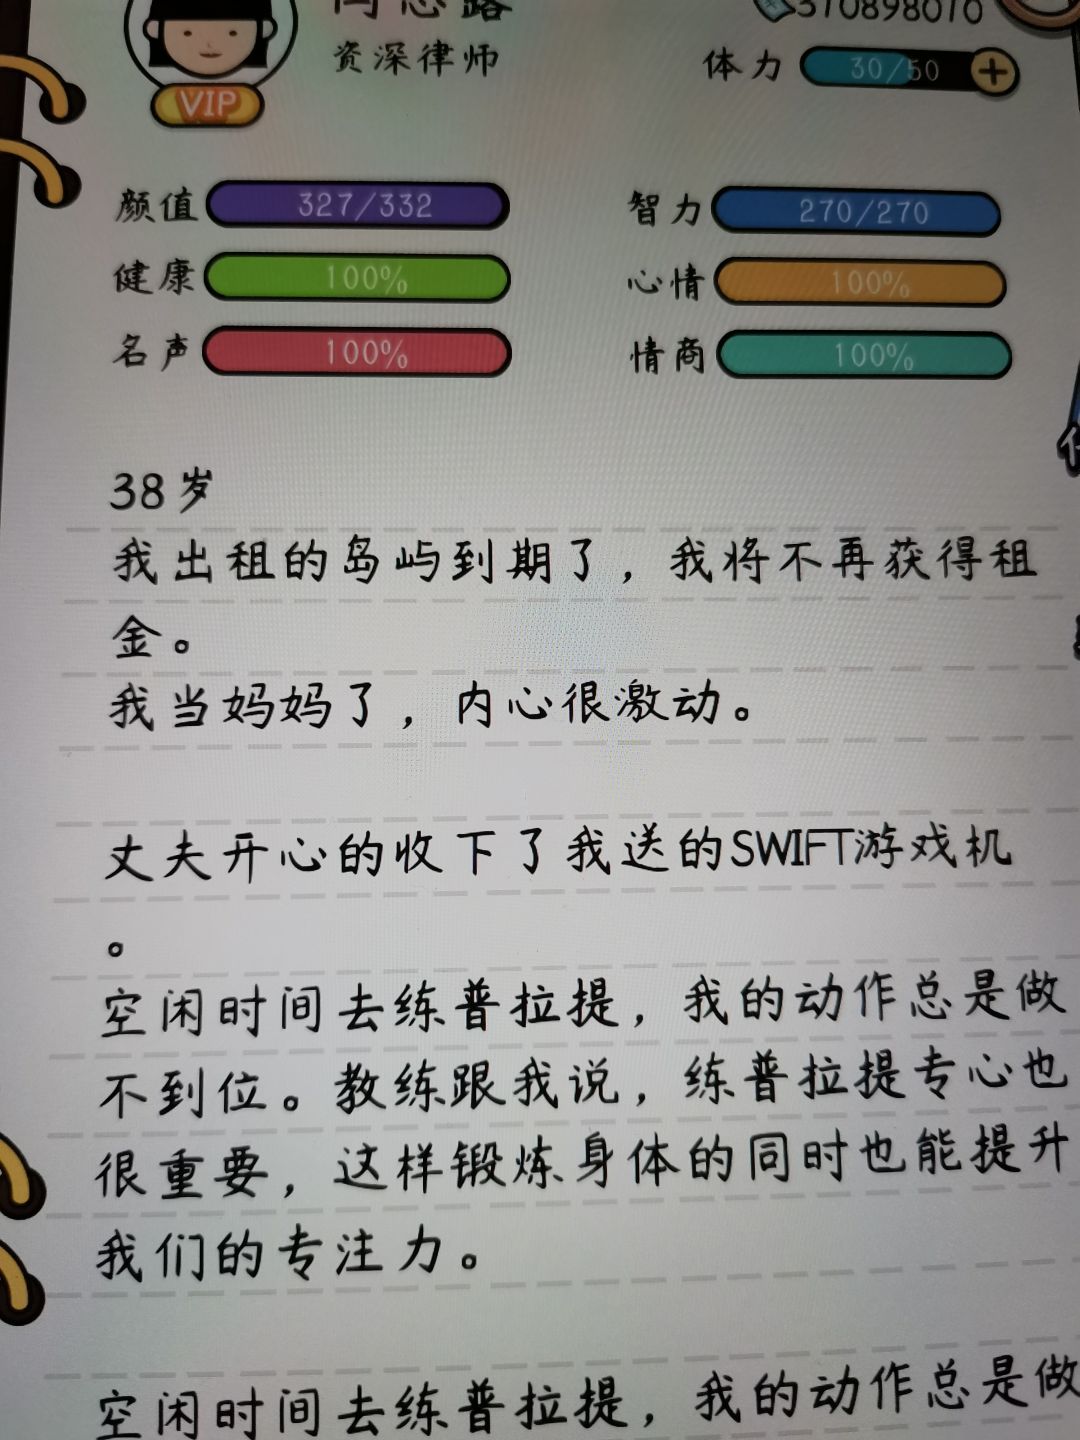 资深律师
VIP
体力 30/50
颜值 327/332
智力 270/270
健康 100%
心情 100%
名声 100%
情商 100%
38岁
我出租的岛屿到期了，我将不再获得租
金。
我当妈妈了，内心很激动。
丈夫开心的收下了我送的SWIFT游戏机
。
空闲时间去练普拉提，我的动作总是做
不到位。教练跟我说，练普拉提专心也
很重要，这样锻炼身体的同时也能提升
我们的专注力。
空闲时间去练普拉提，我的动作总是做